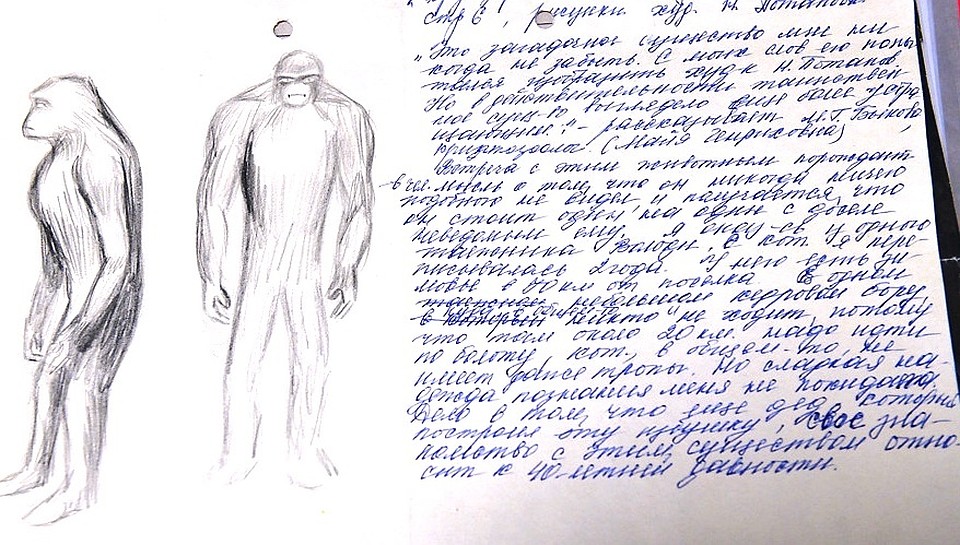 стр 6, рисунки худ. Н. Потапова
„Это загадочное существо мне ни-
когда не забыть. С моих слов его попы-
тался изобразить худ-к Н. Потапов.
Но в действительности таинствен-
ное сущ-во выглядело еще более устра-
шающие". – рассказывает М. Г. Быкова,
криптозоолог. (Майя Генриховна)
Встреча с этим животным порождает
в чел. мысль о том, что он никогда ничего
подобного не видел и получается, что
он стоит один на один с доселе
неведомым ему. Я
таежника Володи, с кот. я пере-
писывалась 2 года. "У него есть зи-
мовье в 80 км от поселка. В одном
небольшом кедровом бору,
в который никто не ходит, потому
что там около 20 км. надо идти
по болоту, кот., в общем-то, не
имеет даже тропы. Но сладкая на-
дежда познания меня не покидала.
Дело в том, что еще дед, который
построил эту избушку, свое зна-
комство с этим существом отно-
сит к 40-летней давности.